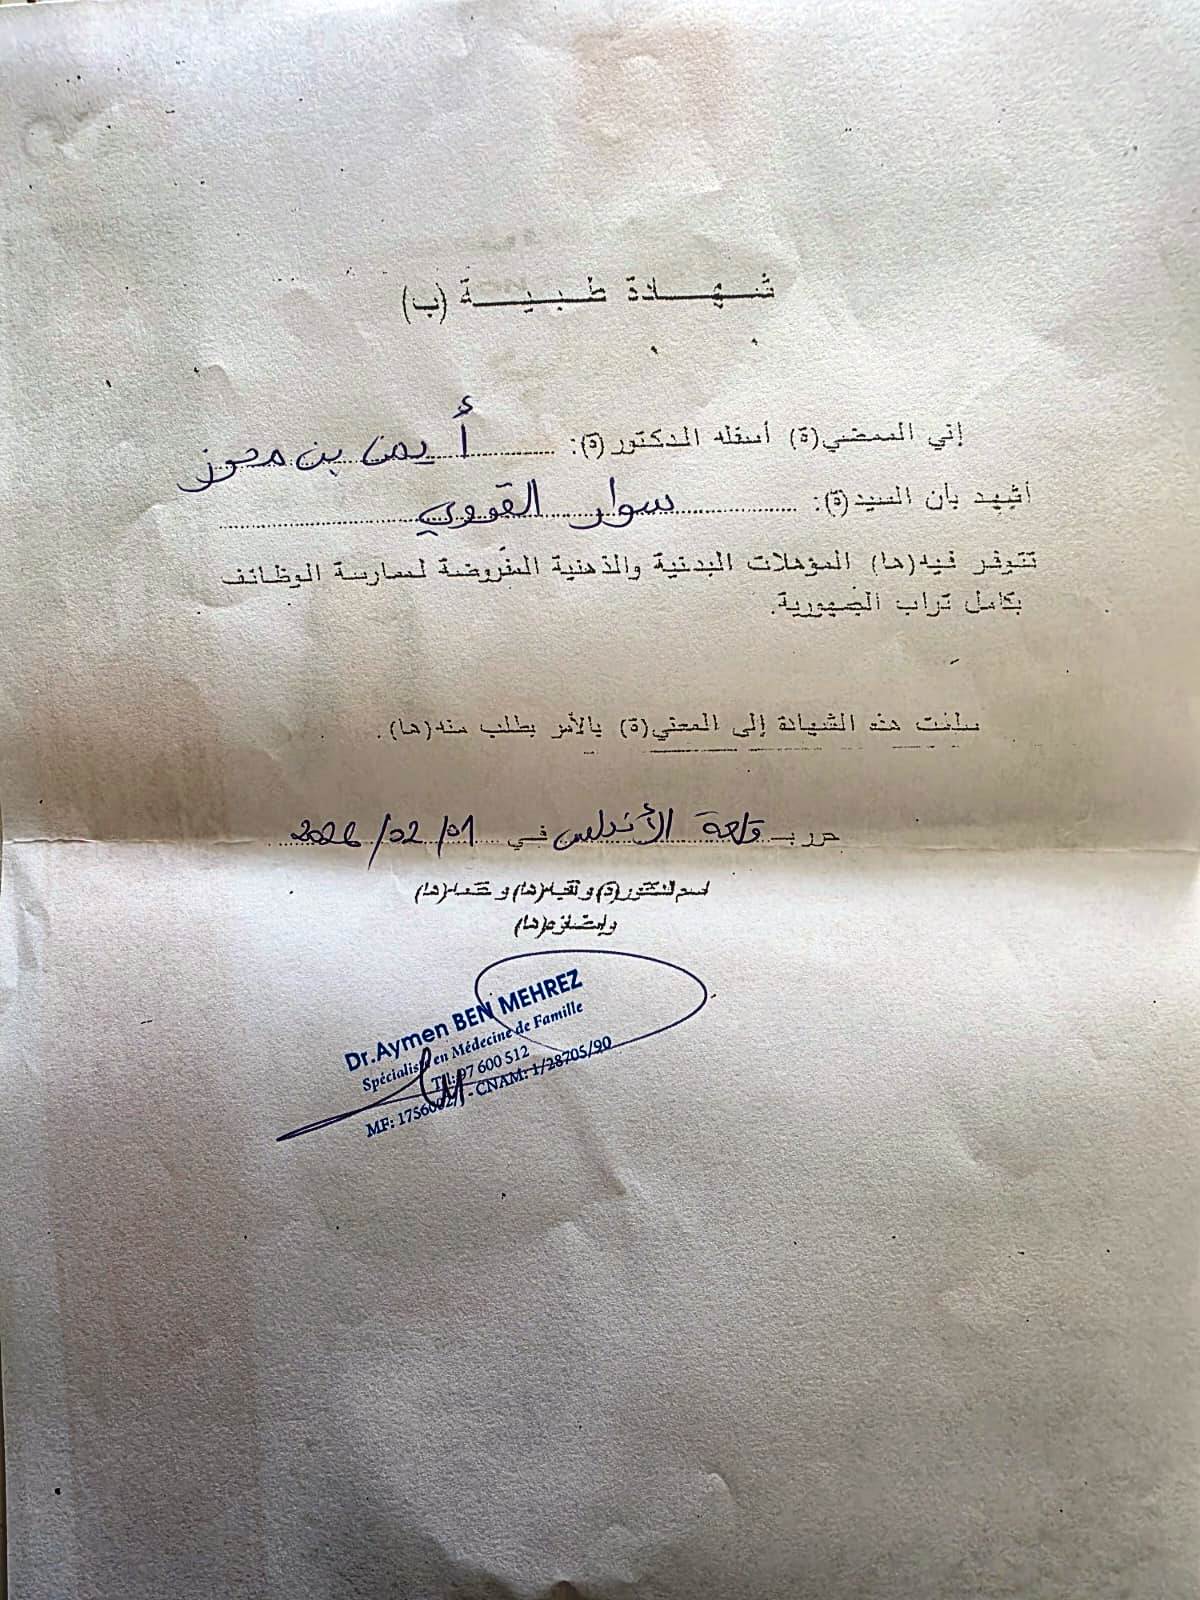 شهادة طبية (ب)
إني الممضي(ة) أسفله الدكتور(ة): أيمن بن محرز
أشهد بأن السيد(ة): سوار القروي
تتوفر فيه(ها) المؤهلات البدنية والذهنية المفروضة لممارسة الوظائف
بكامل تراب الجمهورية.
سلمت هذه الشهادة إلى المعني(ة) بالأمر بطلب منه(ها).
حرر بـ قلعة الأندلس في 01/02/2026
اسم الدكتور(ة) و لقبه(ها) و ختمه(ها)
وإمضاؤه(ها)
Dr.Aymen BEN MEHREZ
Spécialiste en Médecine de Famille
Tél: 97 600 512
MF: - CNAM: 1/28705/90